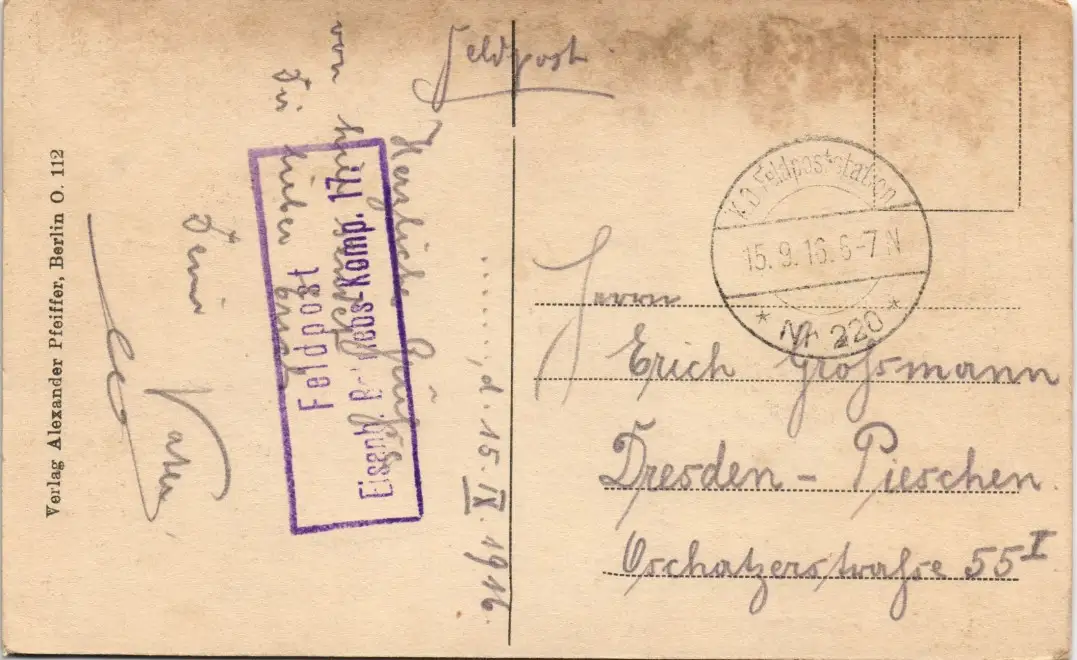 Feldpost
......., d. 15. IX. 1916.
Herzliche Grüße
von
Dir lieber Erich
Dein
Vater
Feldpost
Eisenb. Betriebs-Komp. 17.
Verlag Alexander Pfeiffer, Berlin O. 112
K.D. Feldpoststation
15.9.16. 6-7 N
* Nr. 220 *
Herrn
Erich Großmann
Dresden - Pieschen
Oschatzerstraße 55 I